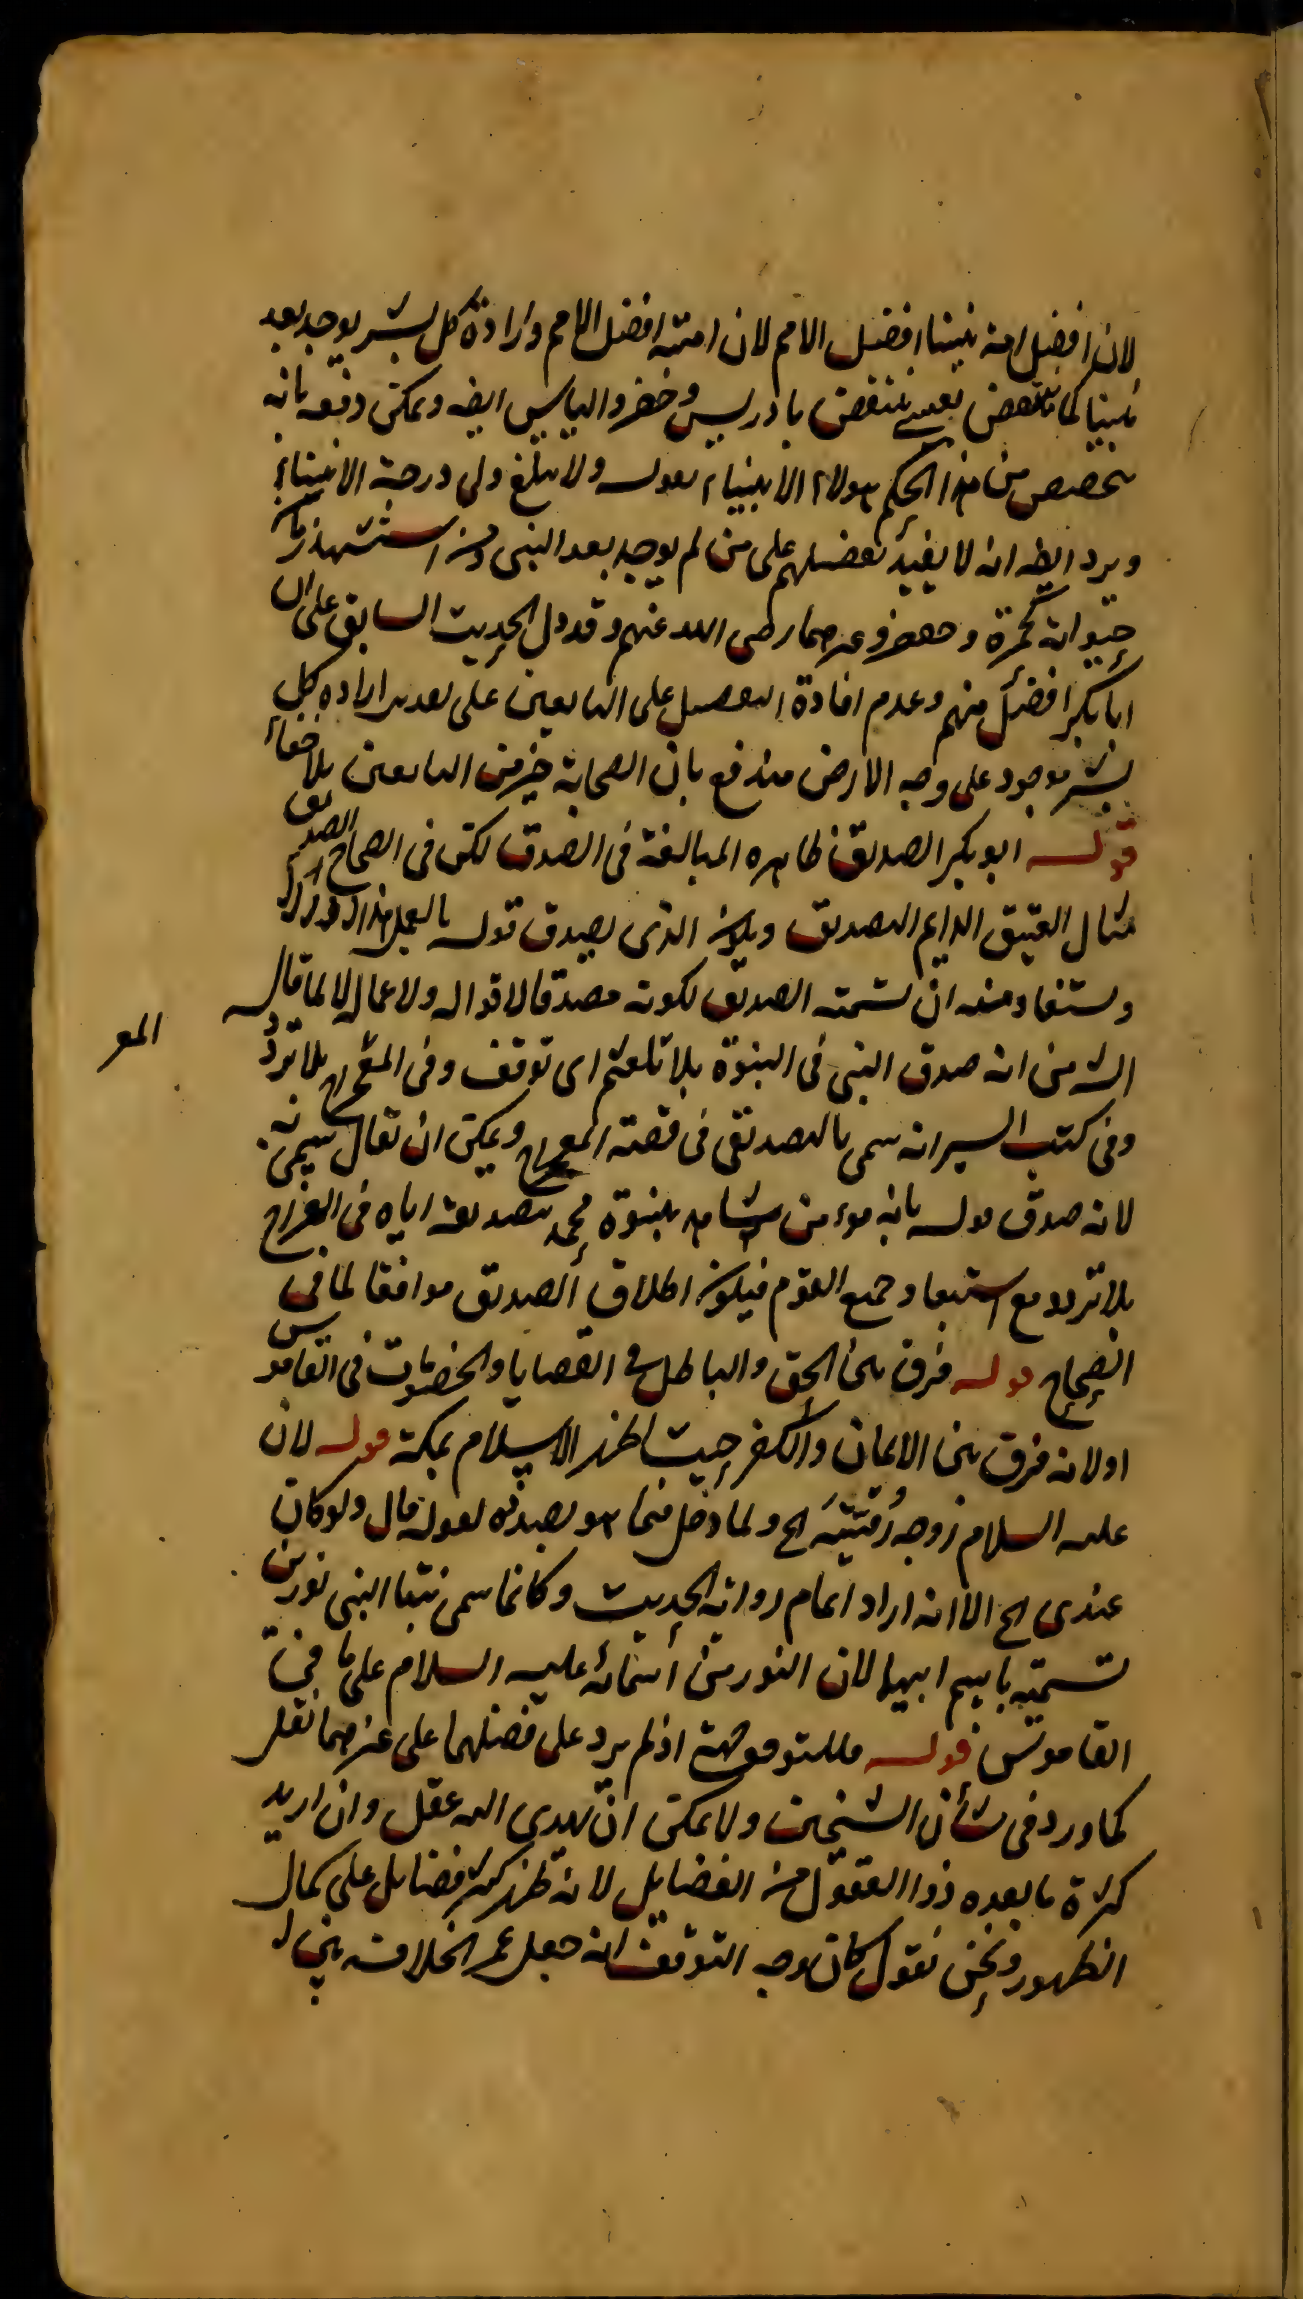 لان افضل امة نبينا افضل الامم لان امته افضل الامم وارادة كل بشر يوجد بعد
نبينا كما ينتقض بعيسى ينتقض بادريس وخضر والياس ايضه ويمكن دفعه بانه
تخصيص من هذا الحكم هولاء الانبياء بقوله ولا يبلغ ولى درجة الانبياء
ويرد ايضه انه لا يفيد تفضيلهم على من لم يوجد بعد النبى ومن استشهد زمان
حيوته كحمزة وجعفر وغيرهما رضى الله عنهم وقد دل الحديث السابق على ان
ابا بكر افضل منهم وعدم افادة التفضيل على التابعين على تقدير ارادة كل
بشر موجود على وجه الارض مندفع بان الصحابة خير من التابعين بلا خفاء
قوله ابو بكر الصديق ظاهره المبالغة فى الصدق لكن فى الصحاح الصديق
مثال الفسيق الدايم التصديق ويكون الذى يصدق قوله بالعمل هذا
ويستفاد منه ان تسميته الصديق لكونه مصدقا لاقواله ولاعماله لا لما قال
الش من انه صدق النبى فى النبوة بلا تلعثم اى توقف وفى المعراج بلا تردد
المع
وفى كتب السير انه سمى بالصديق فى قصة المعراج ويمكن ان يقال سمى به
لانه صدق قوله بانه مومن شاهد بنبوة محمد بتصديقه اياه فى المعراج
بلا تردد مع استبعاد جميع القوم فيكون اطلاق الصديق موافقا لما فى
الصحاح قوله فرق بين الحق والباطل فى القضايا والخصومات فى القاموس
او لانه فرق بين الايمان والكفر حيث اظهر الاسلام بمكة قوله لان
عليه السلام زوجه رقية الخ ولما دخل فيما هو بصدده لقوله قال ولو كان
عندى الخ الا انه اراد اتمام رواية الحديث وكانما سمى بنتا النبى نورين
تسميته باسم ابيها لان النور من اسمائه عليه السلام على ما فى
القاموس قوله فللتوقف جهة اذ لم يرد على فضلهما على غيرهما نقل
كما ورد فى شأن الشيخين ولا يمكن ان يهدى اليه عقل وان اريد
كثرة ما يعده ذوا العقول من الفضايل لانه ظهر كثير فضايل على كمال
الظهور ونحن نقول كان وجه التوقف انه جعل عمر الخلافة بين